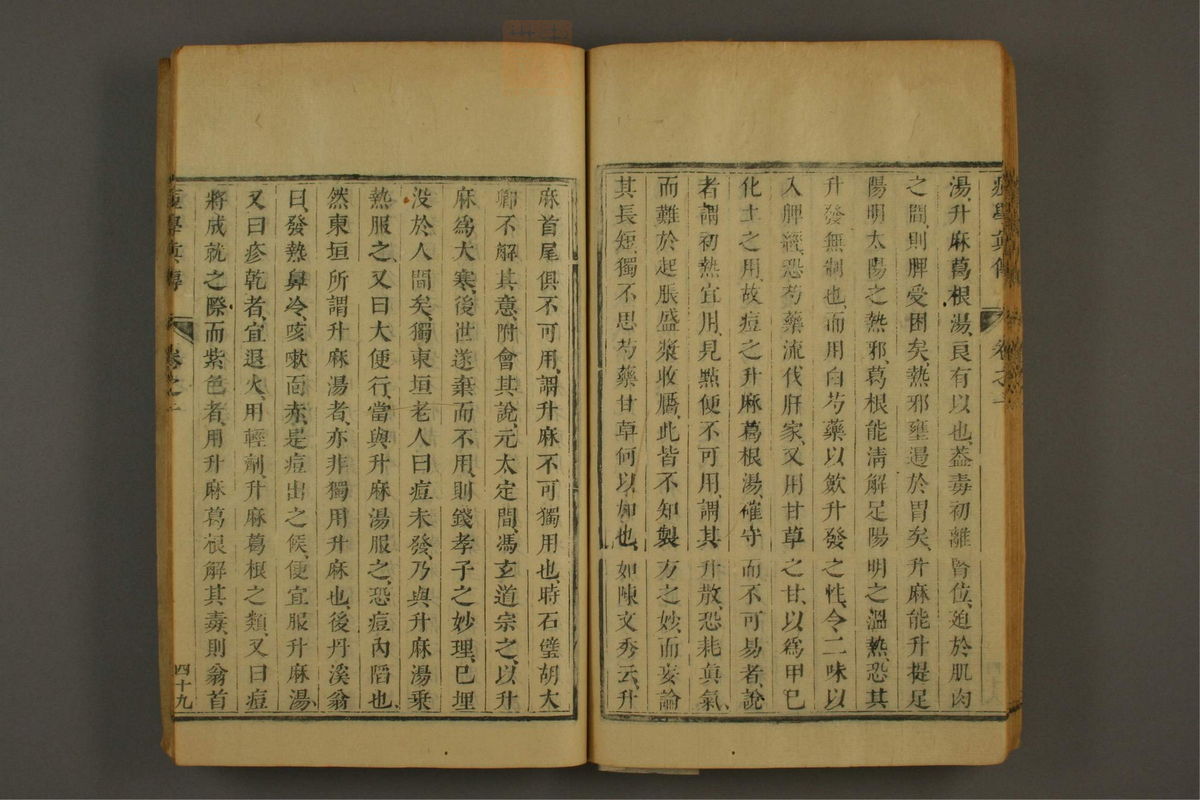 痘學眞傳 卷之二
湯、升麻葛根湯、良有以也、葢毒初離腎位、廹於肌肉
之間、則脾受困矣、熱邪壅遏於胃矣、升麻能升提足
陽明太陽之熱邪、葛根能淸解足陽明之溫熱、恐其
升發無制也、而用白芍藥以斂升發之性、今二味以
入脾經、恐芍藥流伐肝家、又用甘草之甘、以爲甲巳
化土之用、故痘之升麻葛根湯、確守而不可易者、說
者謂初熱宜用、見點便不可用、謂其升散、恐耗眞氣、
而難於起脹盛漿收靨、此皆不知製方之妙、而妄論
其長短、獨不思芍藥甘草何以加也、如陳文秀云、升
麻首尾俱不可用、謂升麻不可獨用也、時石璧胡大
卿不解其意、附會其說、元太定間、馮玄道宗之、以升
麻爲大寒、後世遂棄而不用、則錢孝子之妙理、巳埋
没於人間矣、獨東垣老人曰痘未發、乃與升麻湯乘
熱服之、又曰大便行、當與升麻湯服之、恐痘內陷也、
然東垣所謂升麻湯者、亦非獨用升麻也、後丹溪翁
曰、發熱鼻冷、咳嗽面赤、是痘出之候、便宜服升麻湯、
又曰疹乾者、宜退火、用輕劑升麻葛根之類、又曰痘
將成就之際、而紫色者、用升麻葛根解其毒、則翁首
痘學眞傳 卷之二
四十九